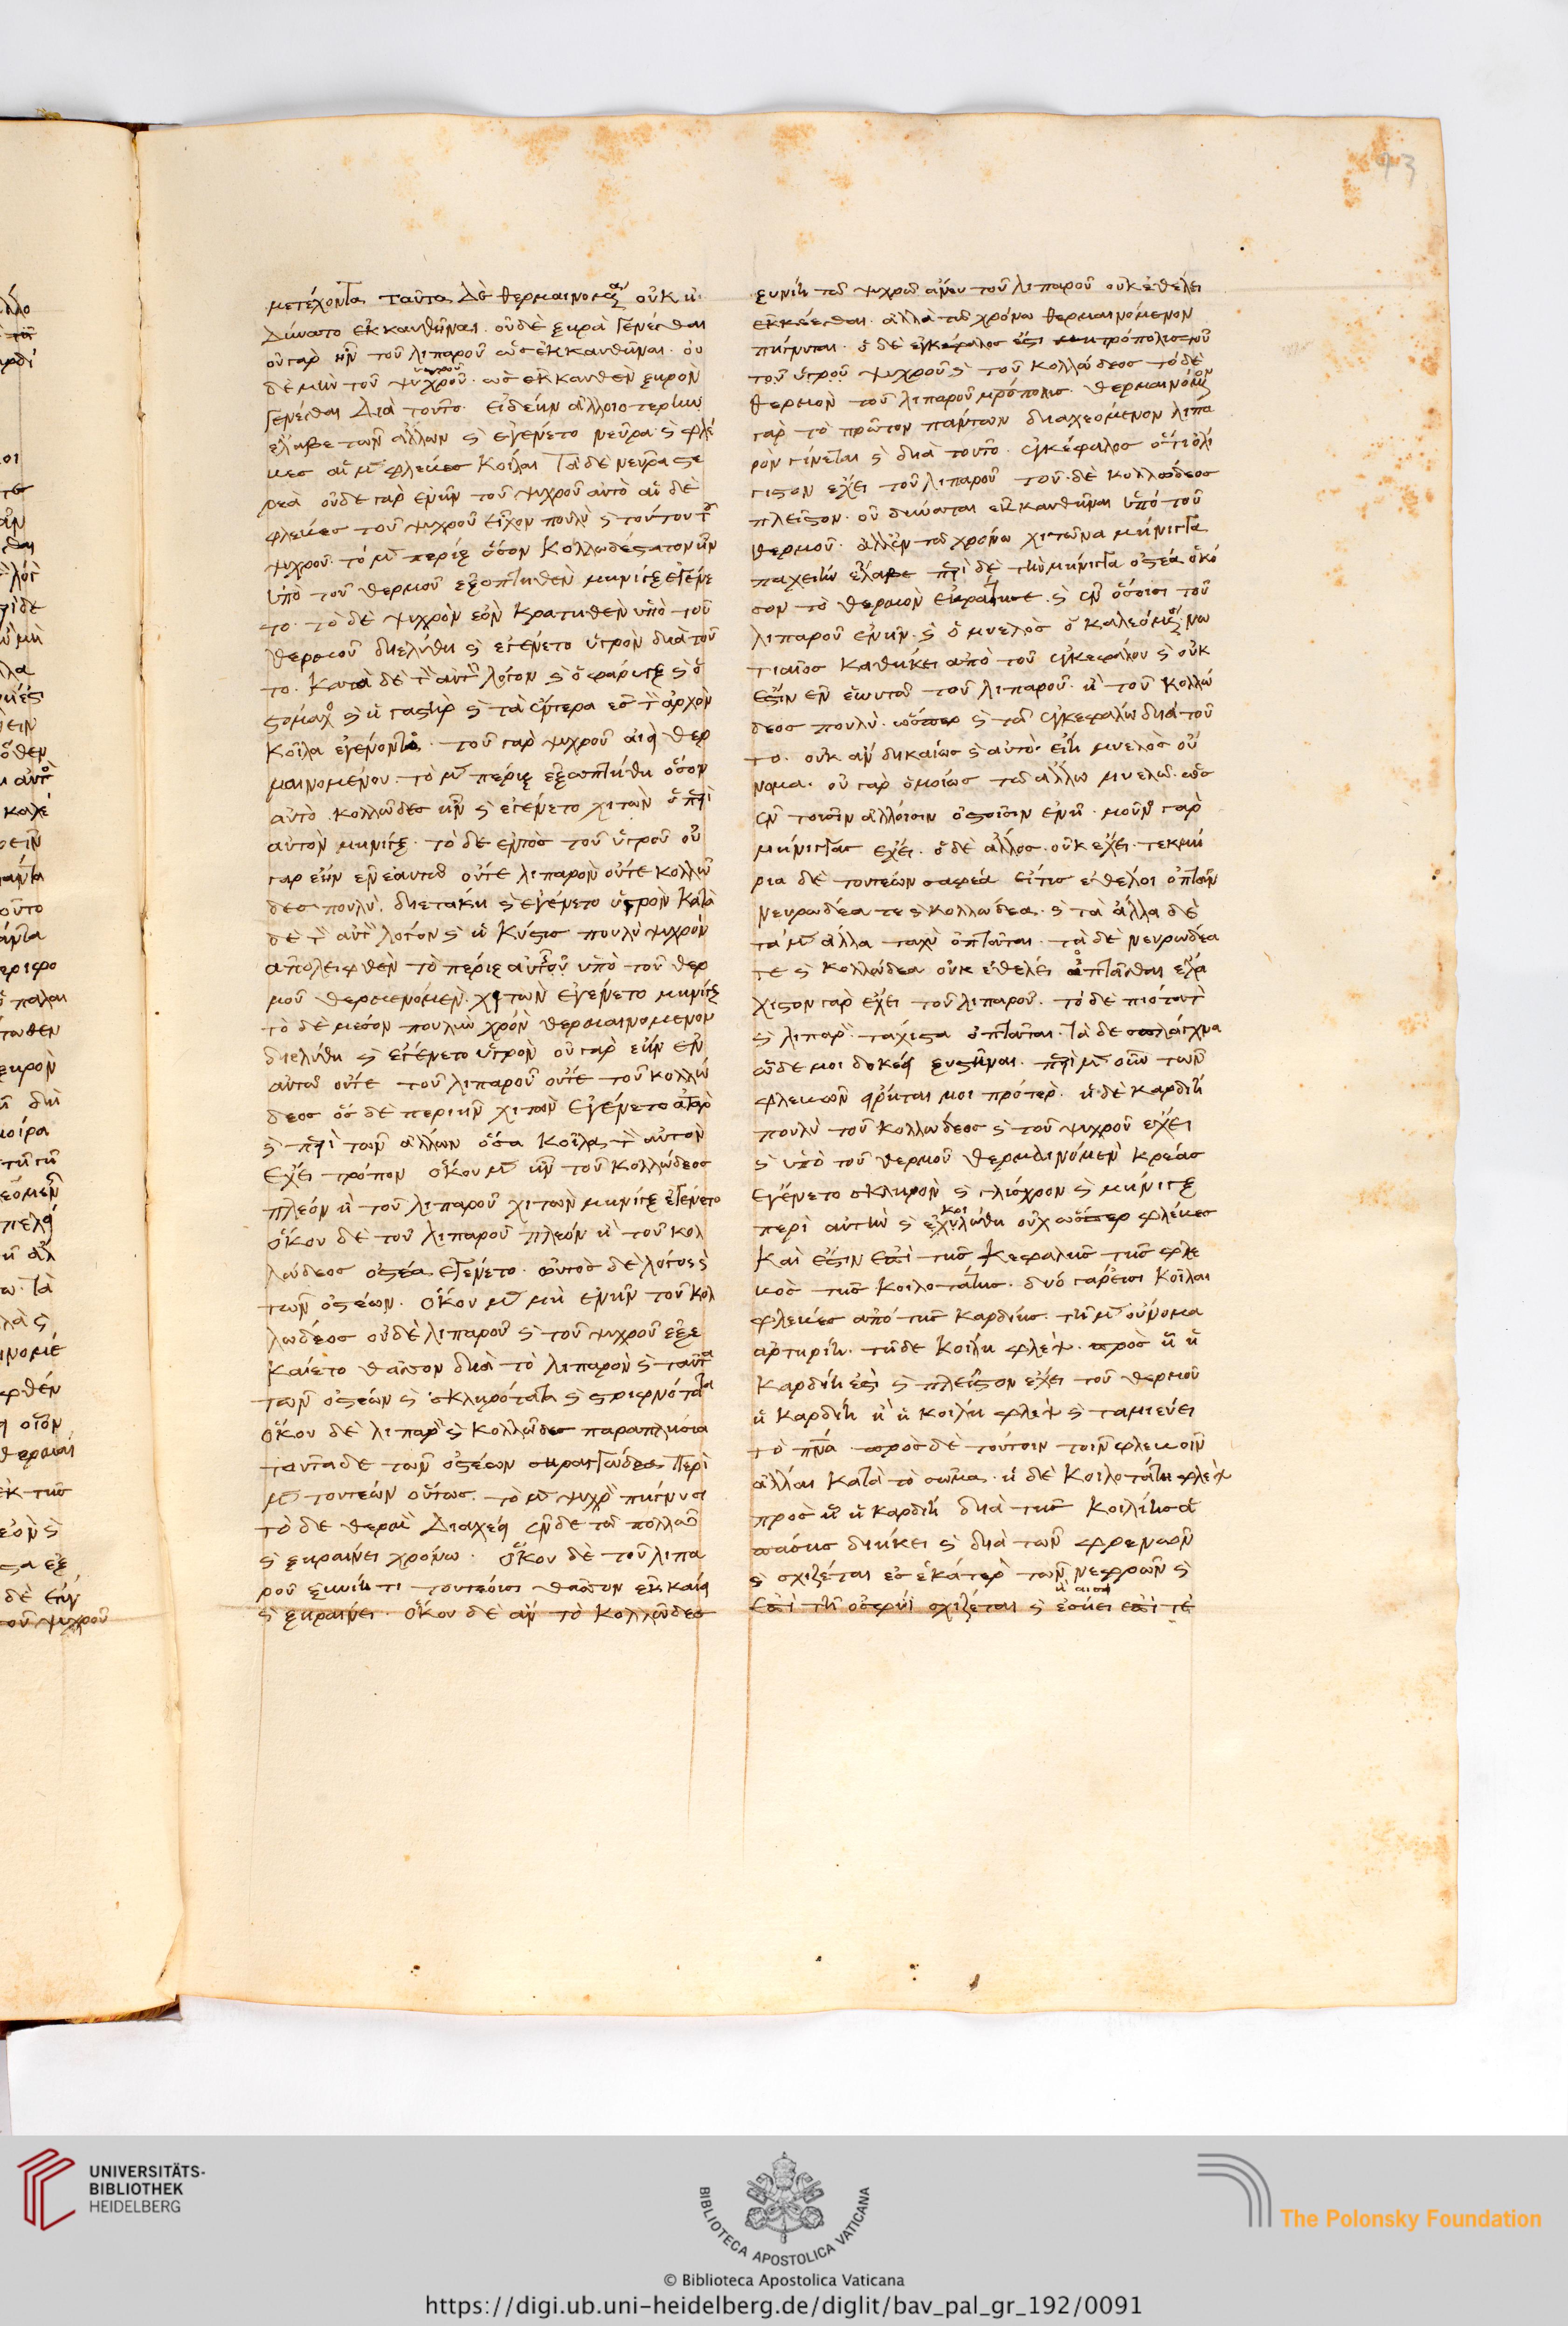 73
μετέχοντα ταῦτα δὲ θερμαινομ ούκ ἠ
δύνατο ἐκκαυθῆναι· οὐδὲ ξηρὰ γενέσθαι
οὐ γὰρ ἦν τοῦ λιπαροῦ ὥς ἐκκαυθῆναι· οὐ
δὲ μὴν τοῦ ψυχροῦ· ὡς ἐκκαυθὲν ξηρὸν
γενέσθαι διὰ τοῦτο· ἰδέην ἀλλοιοτέρην
ἔλαβε τῶν ἄλλων ϗ ἐγένετο νεῦρα ϗ φλέ
βες αἱ μὲν φλέβες κοῖλαι τὰ δὲ νεῦρα στε
ρεὰ οὐδὲ γὰρ ἐνῆν τοῦ ψυχροῦ αὐτὸ αἱ δὲ
φλέβες τοῦ ψυχροῦ εἶχον πουλὺ ϗ τούτου τοῦ
ψυχροῦ· τὸ μὲν πέριξ ὅσον κολλωδέστατον ἦν
ὑπὸ τοῦ θερμοῦ ἐξοπτηθὲν μῆνιγξ ἐγένε
το· τὸ δὲ ψυχρὸν ἐὸν κρατηθὲν ὑπὸ τοῦ
θερμοῦ διελύθη ϗ ἐγένετο ὑγρὸν διὰ τοῦ
το· κατὰ δὲ τὸν αὐτὸν λόγον ϗ ὁ φάρυγξ ϗ ὁ
στόμαχος ϗ ἡ γαστὴρ ϗ τὰ ἔντερα ἐς τὸν ἀρχὸν
κοῖλα ἐγένοντο· τοῦ γὰρ ψυχροῦ αἰεὶ θερ
μαινομένου τὸ μὲν πέριξ ἐξωπτήθη ὅσον
αὐτὸ κολλῶδες ἦν ϗ ἐγένετο χιτὼν ὁ περὶ
αὐτὸν μῆνιγξ· τὸ δὲ ἐντὸς τοῦ ὑγροῦ οὐ
γὰρ ἔην ἐν ἑαυτῷ οὔτε λιπαρὸν οὔτε κολλῶ
δες πουλύ, διετάκη ϗ ἐγένετο ὑγρὸν κατὰ
δὲ τὸν αὐτὸν λόγον ϗ ἡ κύστις πουλὺ ψυχρὸν
ἀπολειφθὲν τὸ πέριξ αὐτοῦ ὑπὸ τοῦ θερ
μοῦ θερμενόμεν χιτὼν ἐγένετο μῆνιγξ
τὸ δὲ μέσον πουλὺν χρόν θερμαινόμενον
διελύθη ϗ ἐγένετο ὑγρὸν οὐ γὰρ ἔην ἐν
αὐτῷ οὔτε τοῦ λιπαροῦ οὔτε τοῦ κολλώ
δεος ὃς δὲ περιῆν χιτὼν ἐγένετο ἀτὰρ
ϗ περὶ τῶν ἄλλων ὅσα κοῖλα τὸν αὐτὸν
ἔχει τρόπον ὅκου μὲν ἦν τοῦ κολλώδεος
πλέον ἢ τοῦ λιπαροῦ χιτὼν μῆνιγξ ἐγένετο
ὅκου δὲ τοῦ λιπαροῦ πλέον ἢ τοῦ κολ
λώδεος ὀστέα ἐγένετο· ωὐτὸς δὲ λόγος ϗ
τῶν ὀστέων· ὅκου μὲν μὴ ἐνῆν τοῦ κολ
λωδέος οὐδὲ λιπαροῦ ϗ τοῦ ψυχροῦ ἐξε
καίετο θᾶσσον διὰ τὸ λιπαρὸν ϗ ταῦτα
τῶν ὀστέων ϗ σκληρότατα ϗ στριφνότατα
ὅκου δὲ λιπαρὸν ϗ κολλῶδες παραπλήσια
ταῦτα δὲ τῶν ὀστέων σηραγγώδεα περὶ
μὲν τουτέων οὕτως· τὸ μὲν ψυχρὸν πήγνυσι
τὸ δὲ θερμὸν διαχέει ἐν δὲ τῷ πολλῷ
ϗ ξηραίνει χρόνῳ· ὅκου δὲ τοῦ λιπα
ροῦ ξυνίῃ τι τουτέοισι θᾶσσον ἐκκαίει
ϗ ξηραίνει· ὅκου δὲ ἂν τὸ κολλῶδες
ξυνίῃ τῷ ψυχρῷ ἄνευ τοῦ λιπαροῦ οὐκ ἐθέλει
ἐκκέεσθαι· ἀλλὰ τῷ χρόνῳ θερμαινόμενον
πήγνυται· ὁ δὲ ἐγκέφαλος ἐστι μητρόπολις τοῦ
τοῦ ὑγροῦ ψυχροῦ ϗ τοῦ κολλώδεος τὸ δὲ
θερμὸν τοῦ λιπαροῦ μρόπολις· θερμαινόμενον
γὰρ τὸ πρῶτον πάντων διαχεόμενον λιπα
ρὸν γίνεται ϗ διὰ τοῦτο· ἐγκέφαλος ὅτι ὀλί
γιστον ἔχει τοῦ λιπαροῦ τοῦ δὲ κολλώδεος
πλεῖστον· οὐ δύναται ἐκκαυθῆναι ὑπὸ τοῦ
θερμοῦ· ἀλλ' ἐν τῷ χρόνῳ χιτῶνα μήνιγγα
παχείην ἔλαβε περὶ δὲ τὴν μήνιγγα ὀστέα ὁκό
σον τὸ θερμὸν ἐκράτησε· ϗ ἐν ὅσοισι τοῦ
λιπαροῦ ἐνῆν· ϗ ὁ μυελὸς ὁ καλεόμενος νω
τιαῖος καθήκει ἀπὸ τοῦ ἐγκεφάλου ϗ οὐκ
ἔστιν ἐν ἑωυτῷ τοῦ λιπαροῦ· ἢ τοῦ κολλώ
δεος πουλύ· ὥσπερ ϗ τῷ ἐγκεφάλῳ διὰ τοῦ
το· οὐκ ἂν δικαίως ϗ αὐτὸ· εἴη μυελὸς οὔ
νομα· οὐ γὰρ ὁμοίως τῷ ἄλλῳ μυελῷ· ὡς
ἐν τοῖσιν ἄλλοισιν ὀστοῖσιν ἐνῇ· μοῦνος γὰρ
μήνιγγας ἔχει· ὁ δὲ ἄλλος· οὐκ ἔχει· τεκμή
ρια δὲ τουτέων σαφέα εἴ τις ἐθέλοι ὀπτᾶν
νευρωδέα τε ϗ κολλωδέα· ϗ τὰ ἄλλα δὲ
τὰ μὲν ἄλλα ταχὺ ὀπτᾶται· τὰ δὲ νευρωδέα
τε ϗ κολλώδεα οὐκ ἐθέλει ὀπτᾶσθαι ἐλά
χιστον γὰρ ἔχει τοῦ λιπαροῦ· τὸ δὲ πιότατον
ϗ λιπαρ τάχιστα ὀπτᾶται· τὰ δὲ σπλάγχνα
ὧδέ μοι δοκέει ξυστῆναι· περὶ μὲν οὖν τῶν
φλεβῶν εἴρηταί μοι πρότερ· ἡ δὲ καρδίη
πουλὺ τοῦ κολλώδεος ϗ τοῦ ψυχροῦ ἔχει
ϗ ὑπὸ τοῦ θερμοῦ θερμαινόμεν κρέας
ἐγένετο σκληρὸν ϗ γλίσχρον ϗ μῆνιγξ
περὶ αὐτὴν ϗ ἐκοιλώθη οὐχ ὥσπερ φλέβες
καὶ ἔστιν ἐπὶ τῆς κεφαλῆς τῆς φλε
βὸς τῆς κοιλοτάτης· δύο γάρ εἰσι κοῖλαι
φλέβες ἀπὸ τῆς καρδίης· τῇ μὲν οὔνομα
ἀρτηρίη· τῇ δὲ κοίλη φλέψ· πρὸς ᾗ ἡ
καρδίη ἐστὶ ϗ πλεῖστον ἔχει τοῦ θερμοῦ
ἡ καρδίη ᾗ ἡ κοίλη φλέψ ϗ ταμιεύει
τὸ πνα· πρὸς δὲ τούτοιν τοῖν φλεβοῖν
ἄλλαι κατὰ τὸ σῶμα· ἡ δὲ κοιλοτάτη φλέψ
πρὸς ᾗ ἡ καρδίη διὰ τῆς κοιλίης ἁ
πάσης διήκει ϗ διὰ τῶν φρενῶν
ϗ σχίζεται ἐς ἑκάτερ τῶν νεφρῶν ϗ
ἐπὶ τῇ ὀσφύι σχίζεται ϗ ἐσήει ἐπί τε
UNIVERSITÄTS-
BIBLIOTHEK
HEIDELBERG
BIBLIOTECA APOSTOLICA VATICANA
The Polonsky Foundation
© Biblioteca Apostolica Vaticana
https://digi.ub.uni-heidelberg.de/diglit/bav_pal_gr_192/0091